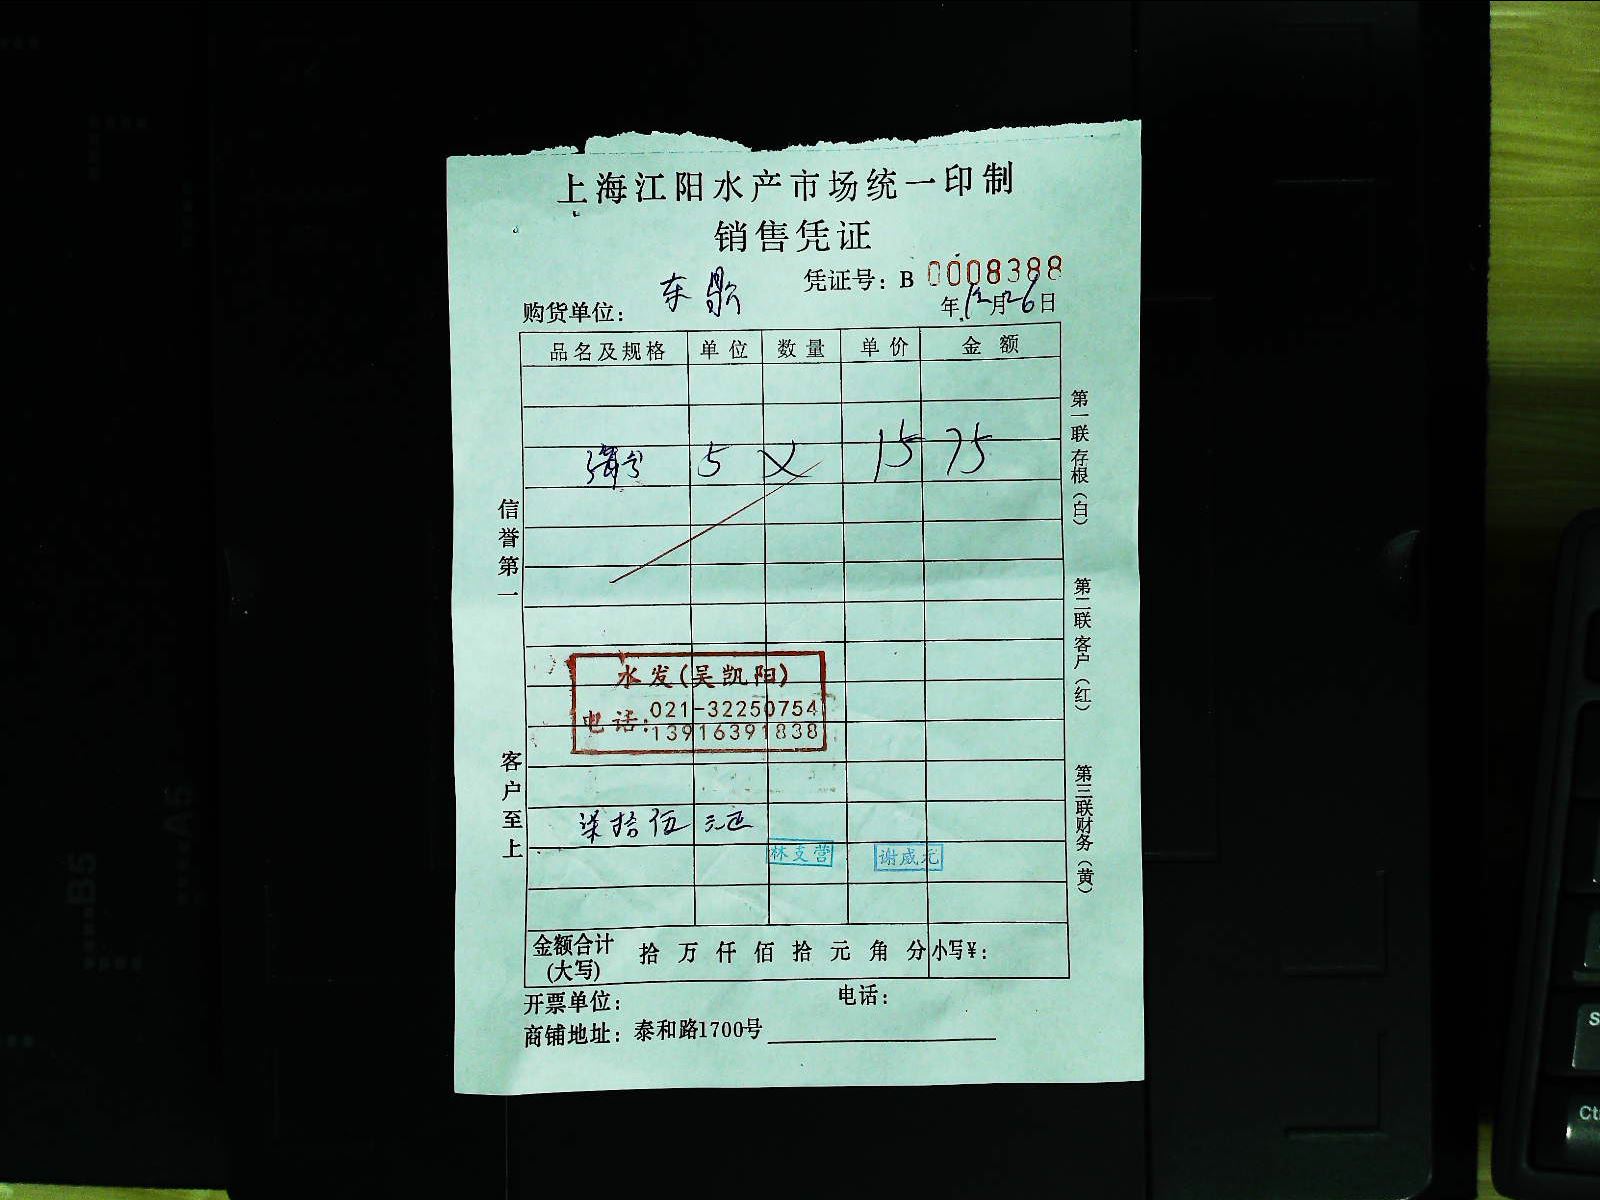 上海江阳水产市场统一印制
销售凭证
凭证号：B 0008388
购货单位： 东鼎
年12月26日
品名及规格 单位 数量 单价 金额
5 15 75
水发(吴凯阳)
电话:021-32250754
13916391838
柒拾伍元正
林支营 谢威元
金额合计(大写) 拾万仟佰拾元角分 小写¥:
开票单位: 电话:
商铺地址: 泰和路1700号
信誉第一
客户至上
第一联存根(白)
第二联客户(红)
第三联财务(黄)
B5
A5